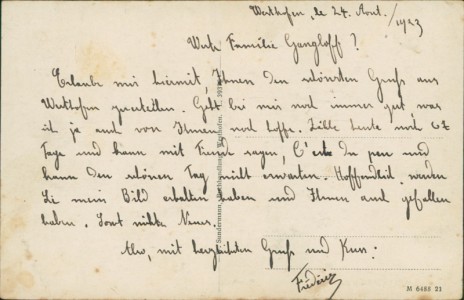 Werthofen, le 24. Aout. / 1923
Werte Familie Gangloff!
Erlaube mir hiermit, Ihnen den schönsten Gruss aus
Werthofen zuerteilen. Geht bei mir noch immer gut, was
ich ja auch von Ihnen noch hoffe. Zähle heute noch 67
Tage und kann mit Freude sagen, C'est du peu und
kann den schönen Tag nicht erwarten. Hoffendlich werden
Sie mein Bild erhalten haben und Ihnen auch gefallen
haben. Sonst nichts Neues.
Also, mit herzlichsten Gruss und Kuss:
Fréderic
M 6488 21